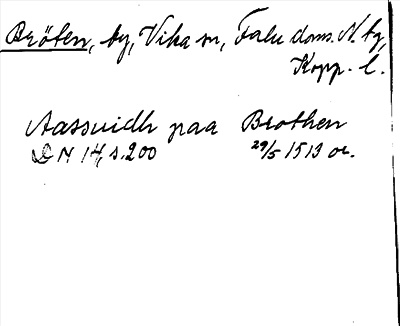 Bröten, by, Vika sn, Falu doms. N. tg,
Kopp. l.
Aassuidh paa Brothen
DN 14, s. 200 29/5 1513 or.